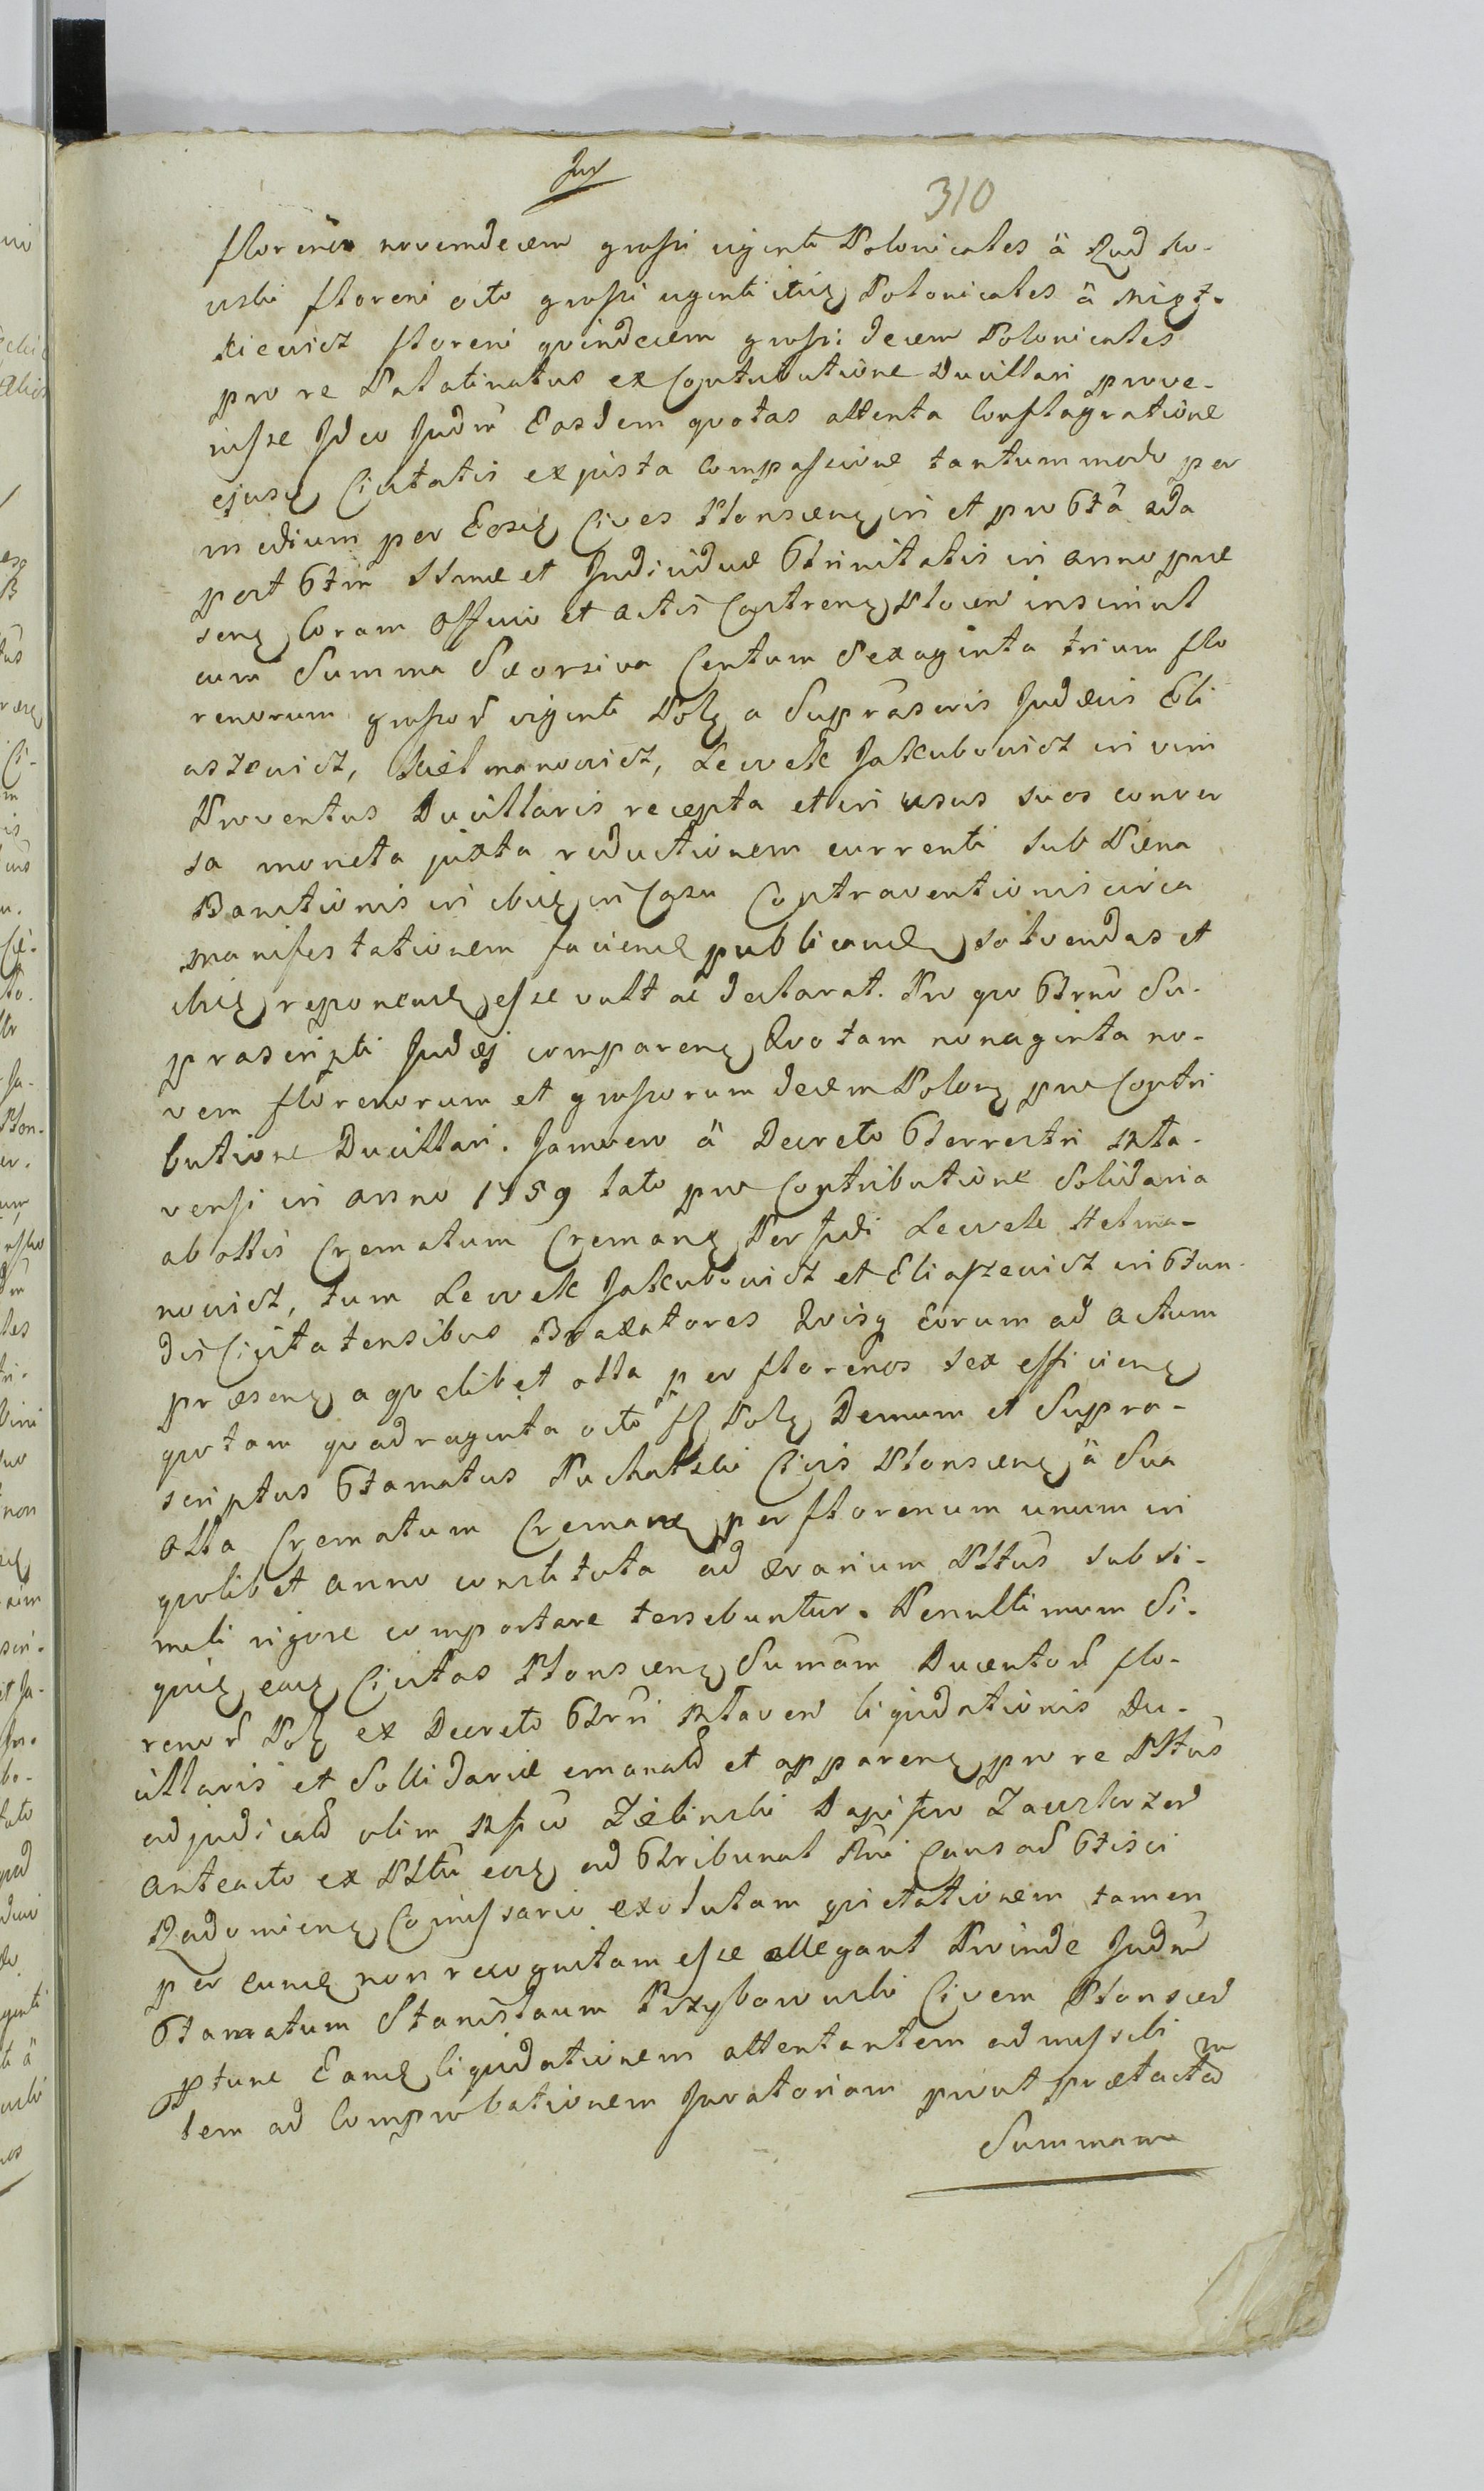 310
floreni novemdecem grossi viginti Polonicales ä Rud ko-
wski floreni octo grossi viginti itidē Polonicales ä
kiewicz floreni quindecem grossi decem Polonicales
pro re Palatinatus ex Contributione Ducillari prove-
nisse Ideo Judm̄ Easdem quotas attenta Conflagratione
ejusdē Civitatis ex justa Compassione tantummodo per
medium per Eosdē Cives Plonscenē in et pro Fā 2da
post Ftm̄ SSmæ et Individuæ Trinitatis in anno præ
senē Coram Officio et actis Castrenē Plocen̄ insimul
cum Summa Seorsiva Centum Sexaginta trium flo
renorum grossor̄ viginti Polē a Suprascris Judæis Eli
aszewicz, Kielmanowicz, Lewek Jakubowicz in vim
Proventus Ducillaris recepta et in usus suos conver
sa moneta juxta reductionem currenti sub Pœna
Banitionis in ibidē in Casu Contraventionis circa
manifestationem faciendē publicandē solvendas et
ibidē reponendē esse vult ac declarat. Pro quo Trnō Su-
prascripti Judæj comparenē Quotam nonaginta no-
vem florenorum et grossorum decem Polonē pro Contri
butione Ducillari. Jam vero ä Decreto Terrestri
vensi in anno 1759 lato pro Contributione Solidaria
ab ollis Crematum Cremanē Perfidi Lewek Helma-
nowicz, tum Lewek Jakubowicz et Eliaszewicz in Fun-
dis Civitatensibus Braxatores Quisq Eorum ad actum
præsenē a qualibet olla per florenos sex efficienē
quotam quadraginta octo fl Polē Demum et Supra-
scriptus Famatus Puchalski Civis Plonscenē ä Sua
olla Crematum Cremanē per florenum unum in
quolibet anno constituta ad ærarium Plttūs sub si-
mili rigore comportare tenebuntur. Penultimum Si-
quidē eadē Civitas Plonscenē Summam Ducentor̄ flo-
renor̄ Polē ex Decreto Trri liquidationis Du-
cillaris et Sollidariæ emanatā et apparenē pro re Plttūs
adjudicatā olim Zielinski Dapifero Zawskrzeń
anteacto ex Plttū eodē ad Tribunal Rni Causad Fisci
Radomienē Comissario exolutam quietationem tamen
per eundē non recognitam esse allegant Proinde Judm̄
Famatum Stanislaum Przyborowski Civem Plonscen̄
ptunc Eandē liquidationem attentantem admissibi
lem ad Comprobationem Juratoriam prout prætactam
Summam